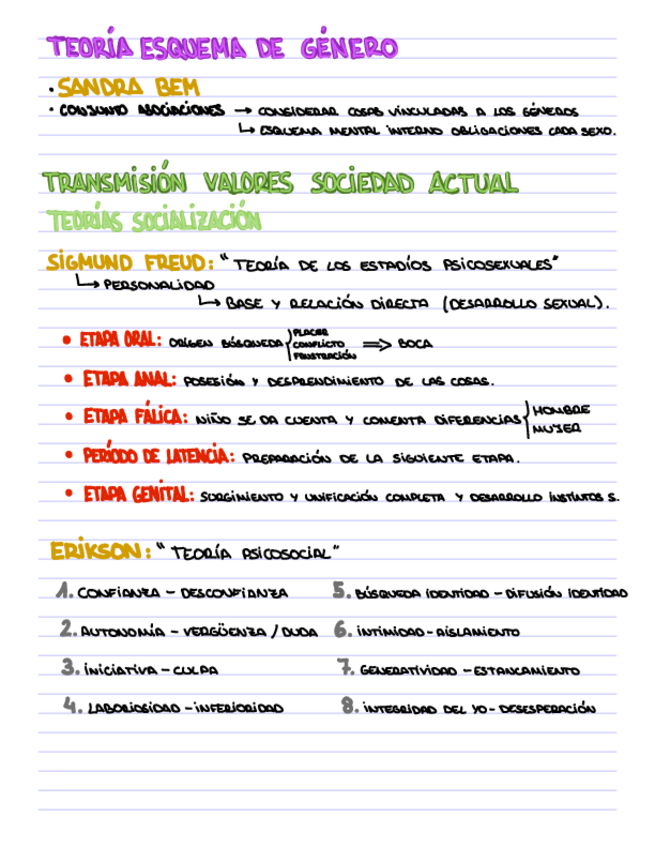 TEORÍA ESQUEMA DE GÉNERO
· SANDRA BEM
· CONJUNTO ASOCIACIONES → CONSIDERAR COSAS VINCULADAS A LOS GÉNEROS
↳ ESQUEMA MENTAL INTERNO OBLIGACIONES CADA SEXO.
TRANSMISIÓN VALORES SOCIEDAD ACTUAL
TEORÍAS SOCIALIZACIÓN
SIGMUND FREUD: "TEORÍA DE LOS ESTADÍOS PSICOSEXUALES"
↳ PERSONALIDAD
↳ BASE Y RELACIÓN DIRECTA (DESARROLLO SEXUAL).
• ETAPA ORAL: ORIGEN BÚSQUEDA { PLACER
CONFLICTO ⇒ BOCA
FRUSTRACIÓN
• ETAPA ANAL: POSESIÓN Y DESPRENDIMIENTO DE LAS COSAS.
• ETAPA FÁLICA: NIÑO SE DA CUENTA Y COMENTA DIFERENCIAS { HOMBRE
MUJER
• PERÍODO DE LATENCIA: PREPARACIÓN DE LA SIGUIENTE ETAPA.
• ETAPA GENITAL: SURGIMIENTO Y UNIFICACIÓN COMPLETA Y DESARROLLO INSTINTOS S.
ERIKSON: "TEORÍA PSICOSOCIAL"
1. CONFIANZA - DESCONFIANZA
2. AUTONOMÍA - VERGÜENZA / DUDA
3. INICIATIVA - CULPA
4. LABORIOSIDAD - INFERIORIDAD
5. BÚSQUEDA IDENTIDAD - DIFUSIÓN IDENTIDAD
6. INTIMIDAD - AISLAMIENTO
7. GENERATIVIDAD - ESTANCAMIENTO
8. INTEGRIDAD DEL YO - DESESPERACIÓN